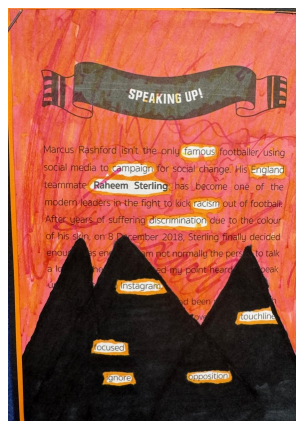 SPEAKING UP!
Marcus Rashford isn't the only famous footballer using
social media to campaign for social change. His England
teammate Raheem Sterling has become one of the
modern leaders in the fight to kick racism out of football.
After years of suffering discrimination due to the colour
of his skin, on 8 December 2018, Sterling finally decided
enough was en am not normally the pers to talk
a lo ed my point heard eak
Instagram
d been
touchline
focused
ignore opposition